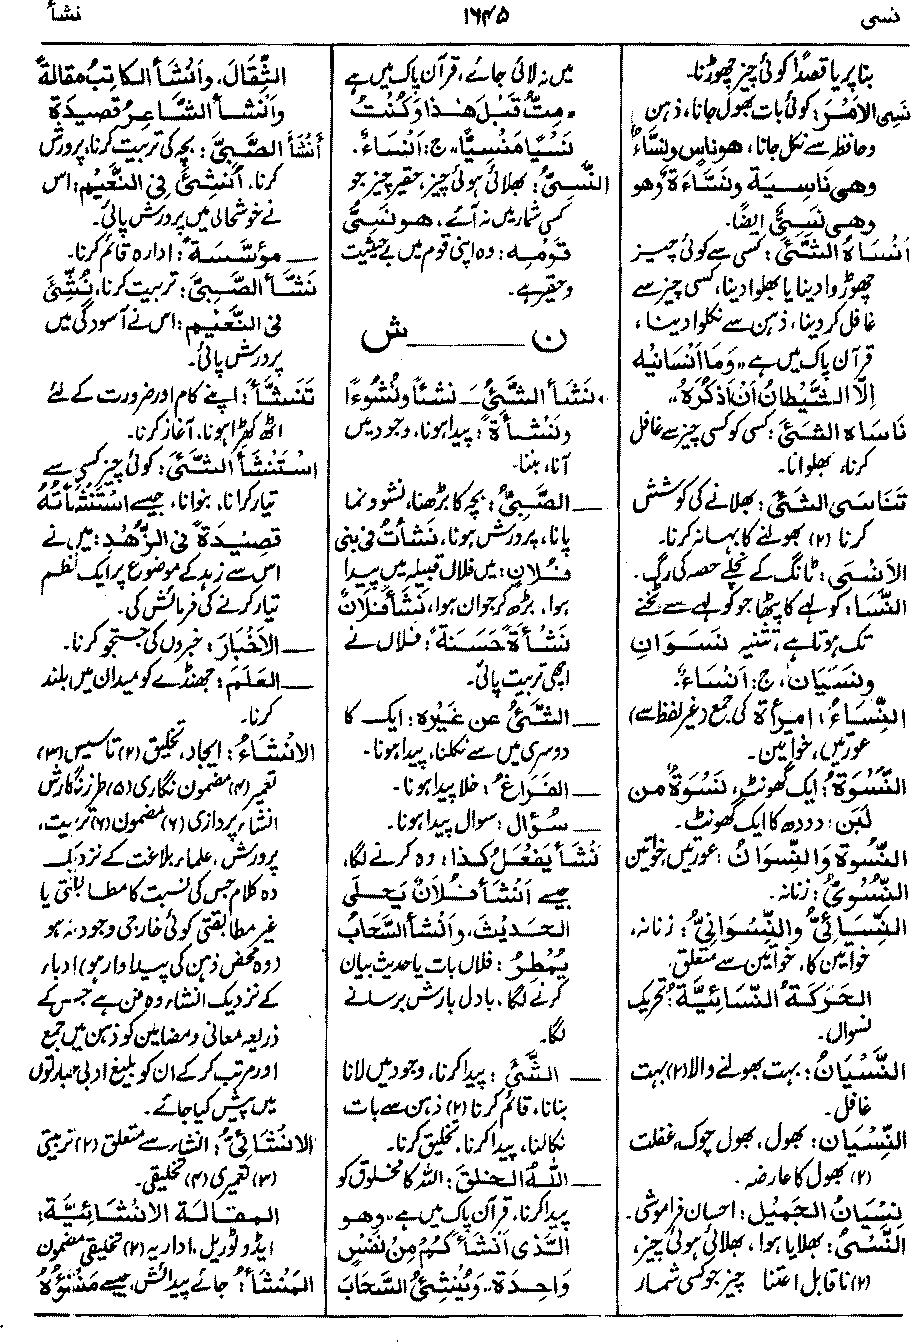 نسی
۱۶۴۵
نشأ
بنا پر یا قصداً کوئی چیز چھوڑنا۔
نَسِیَ الأَمْرَ: کوئی بات بھول جانا، ذہن
و حافظہ سے نکل جانا، ھو ناسٍ و نَسَّاءٌ
وھی ناسِیة ونَسَّاءَةٌ وھو
وھی نَسِیٌّ ایضًا۔
أَنْسَاهُ الشَّئَ: کسی سے کوئی چیز
چھوڑوا دینا یا بھلوا دینا، کسی چیز سے
غافل کردینا، ذہن سے نکلوا دینا،
قرآن پاک میں ہے ”وَمَا أَنْسَانِیْهِ
اِلَّا الشَّیْطَانُ أَنْ أَذْکُرَهُ“
نَاسَاهُ الشَّئَ: کسی کو کسی چیز سے غافل
کرنا، بھلوانا۔
تَنَاسَی الشَّئَ: بھلانے کی کوشش
کرنا (۲) بھولنے کا بہانہ کرنا۔
الأَنْسَی: ٹانگ کے نچلے حصہ کی رگ۔
النَّسَا: کولہے کا پٹھا جو کولہے سے ٹخنے
تک ہوتا ہے، تثنیہ نَسَوَانِ
ونَسَیَانِ، ج: أَنْسَاءٌ۔
النِّسَاءُ: امرأة کی جمع (غیر لفظ سے)
عورتیں، خواتین۔
النَّسْوَةُ: ایک گھونٹ، نَسْوَةٌ من
لَبَن: دودھ کا ایک گھونٹ۔
النِّسْوة وَالنِّسْوَانُ: عورتیں، خواتین
النِّسْوِیُّ: زنانہ۔
النِّسَائِیُّ والنِّسْوَانِیُّ: زنانہ،
خواتین کا، خواتین سے متعلق۔
الحَرَکَةُ النِّسَائِیَّةُ: تحریک
نسواں۔
النَّسْیَانُ: بہت بھولنے والا (۲) بہت
غافل۔
النِّسْیَان: بھول، بھول چوک، غفلت
(۲) بھول کا عارضہ۔
نِسْیَانُ الجَمِیْل: احسان فراموشی۔
النَّسْیُ: بھلایا ہوا، بھلائی ہوئی چیز،
(۲) ناقابل اعتنا چیز جو کسی شمار
میں نہ لائی جائے، قرآن پاک میں ہے
”مِتُّ قَبْلَ هٰذَا وَکُنْتُ
نَسْیًا مَنْسِیًّا“ ج: أَنْسَاءٌ۔
النَّسِیُّ: بھلائی ہوئی چیز، حقیر چیز جو
کسی شمار میں نہ آئے، ھو نَسِیُّ
قَوْمِه: وہ اپنی قوم میں بے حیثیت
و حقیر ہے۔
ن ـــــ ش
نَشَأَ الشَّئُ ــ نَشْأً ونُشُوءًا
ونَشْأَةً: پیدا ہونا، وجود میں
آنا، بننا۔
ــ الصَّبِیُّ: بچہ کا بڑھنا، نشوونما
پانا، پرورش ہونا، نَشَأْتُ فی بنی
فُلَان: میں فلاں قبیلہ میں پیدا
ہوا، بڑھ کر جوان ہوا، نَشَأَ فُلَانٌ
نَشْأَةً حَسَنَةً: فلاں نے
اچھی تربیت پائی۔
ــ الشَّئُ عن غَیْرِه: ایک کا
دوسری میں سے نکلنا، پیدا ہونا۔
ــ الفَرَاغُ: خلا پیدا ہونا۔
ــ سُؤَال: سوال پیدا ہونا۔
نَشَأَ یَفْعَلُ کذا: وہ کرنے لگا،
جیسے أَنْشَأَ فُلَانٌ یَحْکِی
الحَدِیْثَ، وأَنْشَأَ السَّحَابُ
یُمْطِرُ: فلاں بات یا حدیث بیان
کرنے لگا، بادل بارش برسانے
لگا۔
ــ الشَّئَ: پیدا کرنا، وجود میں لانا
بنانا، قائم کرنا (۲) ذہن سے بات
نکالنا، پیدا کرنا، تخلیق کرنا۔
ــ اللّٰهُ الخلقَ: اللہ کا مخلوق کو
پیدا کرنا، قرآن پاک میں ہے ”وھو
الَّذِی أَنْشَأَکُمْ مِنْ نَفْسٍ
وَاحِدَة“ وَیُنْشِئُ السَّحَابَ
الثِّقَالَ، وأَنْشَأَ الکَاتِبُ مقالةً
وأَنْشَأَ الشَّاعِرُ قَصِیدَةً
أَنْشَأَ الصَّبِیَّ: بچہ کی تربیت کرنا، پرورش
کرنا، أُنْشِئَ فِی النَّعِیْمِ: اس
نے خوشحالی میں پرورش پائی۔
ــ مؤسَّسَةً: ادارہ قائم کرنا۔
نَشَّأَ الصَّبِیَّ: تربیت کرنا، نُشِّئَ
فی النَّعِیْم: اس نے آسودگی میں
پرورش پائی۔
تَنَشَّأَ: اپنے کام اور ضرورت کے لئے
اٹھ کھڑا ہونا، آغاز کرنا۔
اسْتَنْشَأَ الشَّئَ: کوئی چیز کسی سے
تیار کرانا، بنوانا، جیسے اسْتَنْشَأْتُهُ
قَصِیْدَةً فی الزُّهْد: میں نے
اس سے زہد کے موضوع پر ایک نظم
تیار کرنے کی فرمائش کی۔
ــ الأَخْبَارَ: خبروں کی جستجو کرنا۔
ــ العَلَمَ: جھنڈے کو میدان میں بلند
کرنا۔
الإِنْشَاءُ: ایجاد، تخلیق (۲) تاسیس (۳)
تعمیر (۴) مضمون نگاری (۵) طرز نگارش
انشاء پردازی (۶) مضمون (۶) تربیت،
پرورش، علماء بلاغت کے نزدیک
وہ کلام جس کی نسبت کا مطابقتی یا
غیر مطابقتی کوئی خارجی وجود نہ ہو
(وہ محض ذہن کی پیداوار ہو) ادباء
کے نزدیک انشاء وہ فن ہے جس کے
ذریعہ معانی و مضامین کو ذہن میں جمع
اور مرتب کرکے ان کو بلیغ ادبی عبارتوں
میں پیش کیا جائے۔
الإِنْشَائِیُّ: انشاء سے متعلق (۲) تربیتی
(۳) تعمیری (۴) تخلیقی۔
المقالة الإنْشَائِیَّة:
ایڈوٹوریل، اداریہ (۲) تخلیقی مضمون
المَنْشَأُ: جائے پیدائش، جیسے مَنْشَؤُهُ